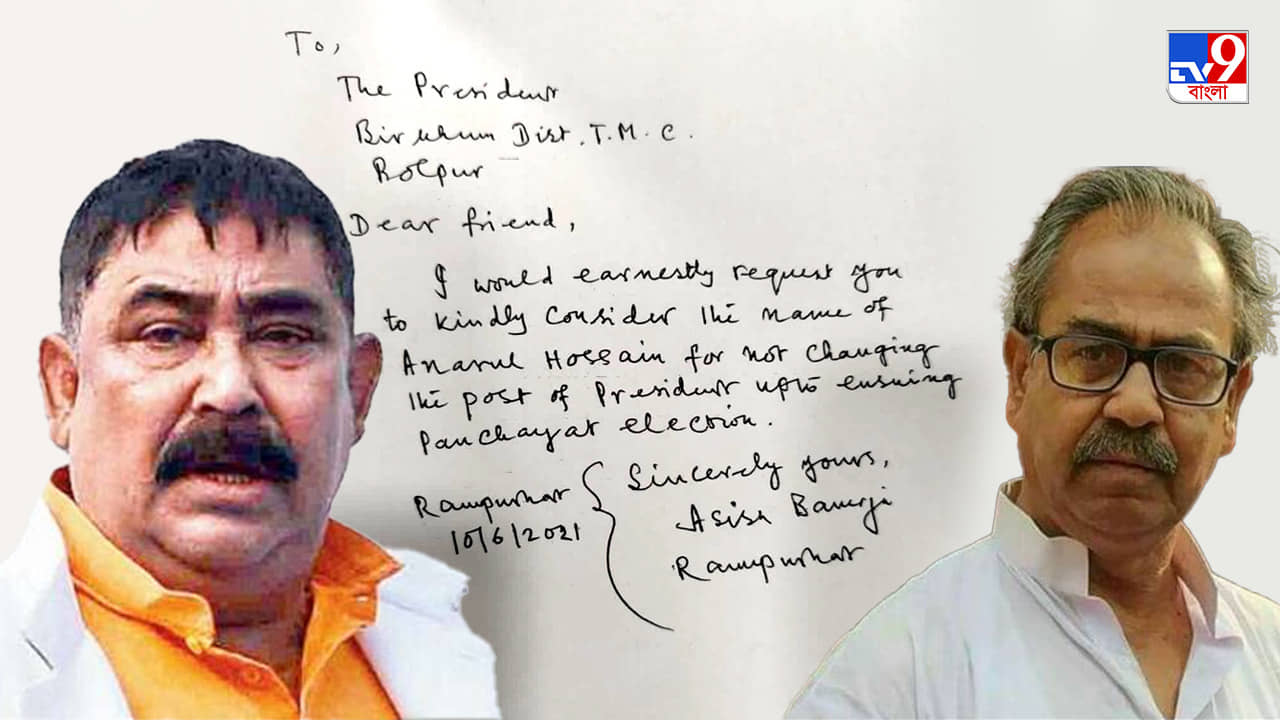 To,
The President
Birbhum Dist. T.M.C.
Bolpur
Dear friend,
I would earnestly request you
to kindly consider the name of
Anarul Hossain for not changing
the post of President upto ensuing
Panchayat election.
Sincerely yours,
Asish Banerji
Rampurhat
Rampurhat
10/6/2021
TV9
বাংলা